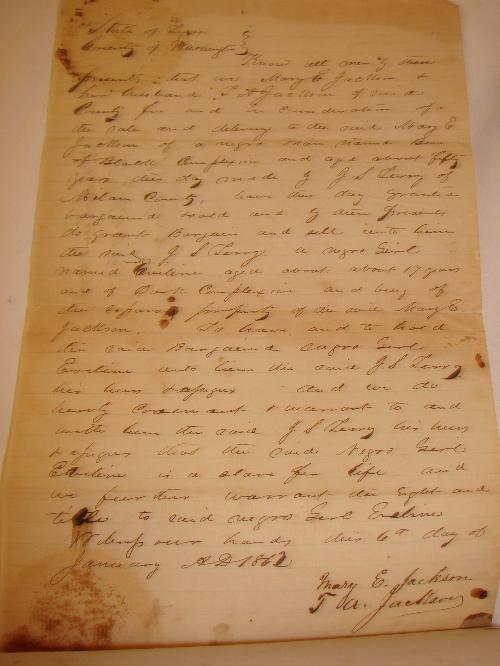 State of Texas
County of Washington
Know all men by these
presents that we Mary E Jackson &
her husband T A Jackson of said
County for and in consideration of
the sale and delivery to the said Mary E
Jackson of a negro man named Ben
of Black Complexion and aged about fifty
years this day made by J S Terry of
Milam County, have this day granted
bargained sold and by these presents
do grant Bargain and sell unto him
the said J S Terry a negro Girl
named Eveline aged about about 17 years
and of Dark Complexion and being of
the separate property of the said Mary E
Jackson, To have and to hold
the said Bargained negro Girl
Eveline unto him the said J S Terry
his heirs & assigns and we do
hereby Covenant & warrant to and
with him the said J S Terry his heirs
& assigns that the said Negro Girl
Eveline is a slave for life and
we further warrant the right and
title to said negro Girl Eveline
Witness our hands this 6th day of
January AD 1862
Mary E. Jackson
T A. Jackson